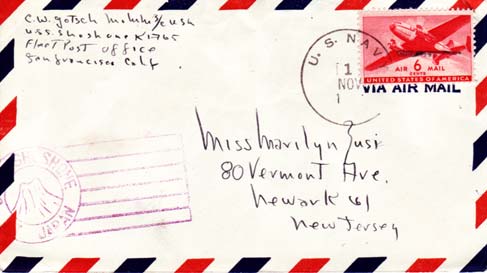 C.W. Gotsch
U.S.S. Shoshone
Fleet Post Office
San Francisco Calif
U.S. NAV
1
NOV
1
AIR 6 MAIL
CENTS
UNITED STATES OF AMERICA
VIA AIR MAIL
Miss Marilyn
80 Vermont Ave.
Newark
New Jersey